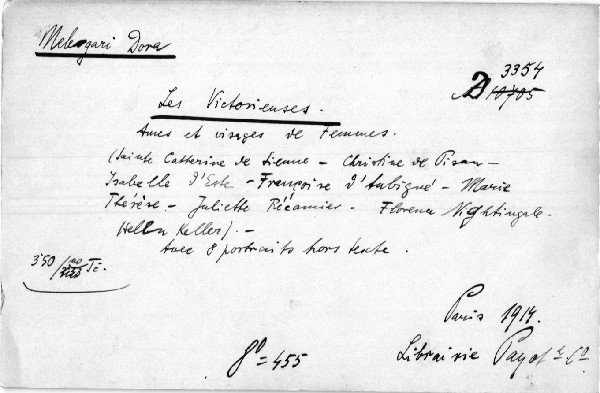 Melegari Dora
3354
2 10705
Les Victorienses.
Ames et visages de Femmes.
(Sainte Catterine de Sienne - Christine de Pisan -
Isabelle d'Este - Françoise d'Aubigné - Marie
Thérèse. - Juliette Récamier - Florence Nightingale -
Hellen Keller). -
Avec 8 portraits hors texte.
350/
Paris 1914.
8º = 455
Librairie Payot & Co